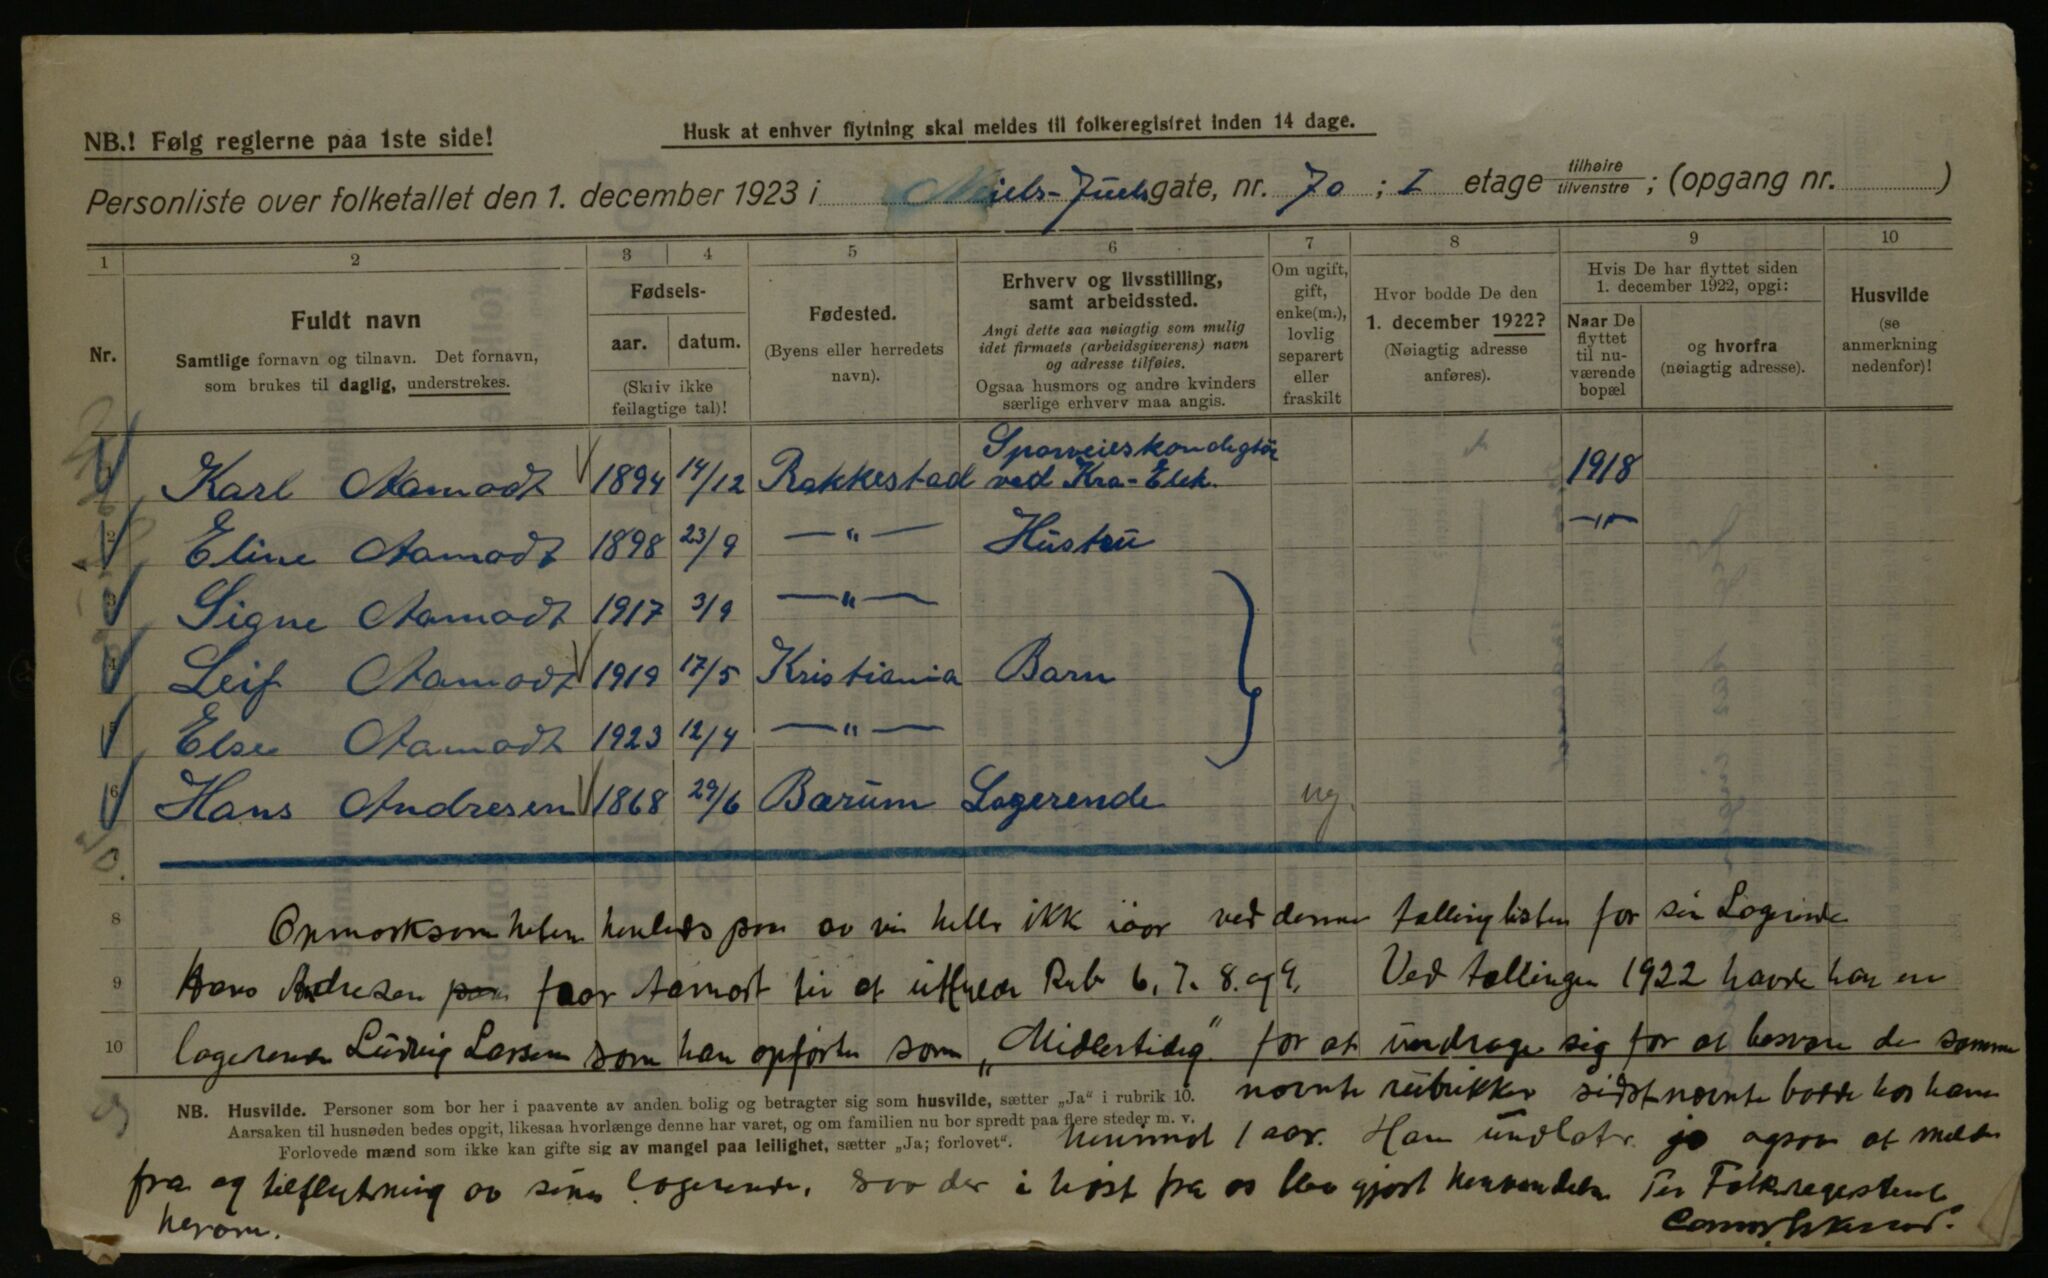 NB.! Følg reglerne paa 1ste side!
Husk at enhver flytning skal meldes til folkeregistret inden 14 dage.
Personliste over folketallet den 1. december 1923 i Niels-Juels gate, nr. 70 ; I etage tilhøire/tilvenstre ; (opgang nr. )
1 2 3 4 5 6 7 8 9 10
Nr.
Fuldt navn
Samtlige fornavn og tilnavn. Det fornavn,
som brukes til daglig, understrekes.
Fødsels-
aar. datum.
(Skriv ikke
feilagtige tal)!
Fødested.
(Byens eller herredets
navn).
Erhverv og livsstilling,
samt arbeidssted.
Angi dette saa nøiagtig som mulig
idet firmaets (arbeidsgiverens) navn
og adresse tilføies.
Ogsaa husmors og andre kvinders
særlige erhverv maa angis.
Om ugift,
gift,
enke(m.),
lovlig
separert
eller
fraskilt
Hvor bodde De den
1. december 1922?
(Nøiagtig adresse
anføres).
Hvis De har flyttet siden
1. december 1922, opgi:
Naar De
flyttet
til nu-
værende
bopæl
og hvorfra
(nøiagtig adresse).
Husvilde
(se
anmerkning
nedenfor)!
1 Karl Aamodt 1894 14/12 Rakkestad Sporveiskonduktør ved Kra-Elek. 1918
2 Eline Aamodt 1898 23/9 —"— Hustru —"—
3 Signe Aamodt 1917 3/9 —"—
4 Leif Aamodt 1919 17/5 Kristiania Barn
5 Else Aamodt 1923 12/4 —"—
6 Hans Andresen 1868 29/6 Bærum Logerende ug.
8 Opmerksomheten henledes paa av vi heller ikke iaar ved denne tællingslisten for sin Logerende
9 Hans Andresen faar Aamodt til at utfylde Rub 6, 7. 8. og 9. Ved tællingen 1922 havde han en
10 logerende Ludvig Larsen som han opførte som „Midlertidig" for at undrage sig for at besvare de samme
nævnte rubrikker sidstnævnte bodde hos ham
henimot 1 aar. Han undlater jo ogsaa at melde
fra og tilflytning av sine logerende, saa der i høst fra os blev gjort henvendelse til Folkeregisteret
herom.
NB. Husvilde. Personer som bor her i paavente av anden bolig og betragter sig som husvilde, sætter „Ja" i rubrik 10.
Aarsaken til husnøden bedes opgit, likesaa hvorlænge denne har varet, og om familien nu bor spredt paa flere steder m. v.
Forlovede mænd som ikke kan gifte sig av mangel paa leilighet, sætter „Ja; forlovet".